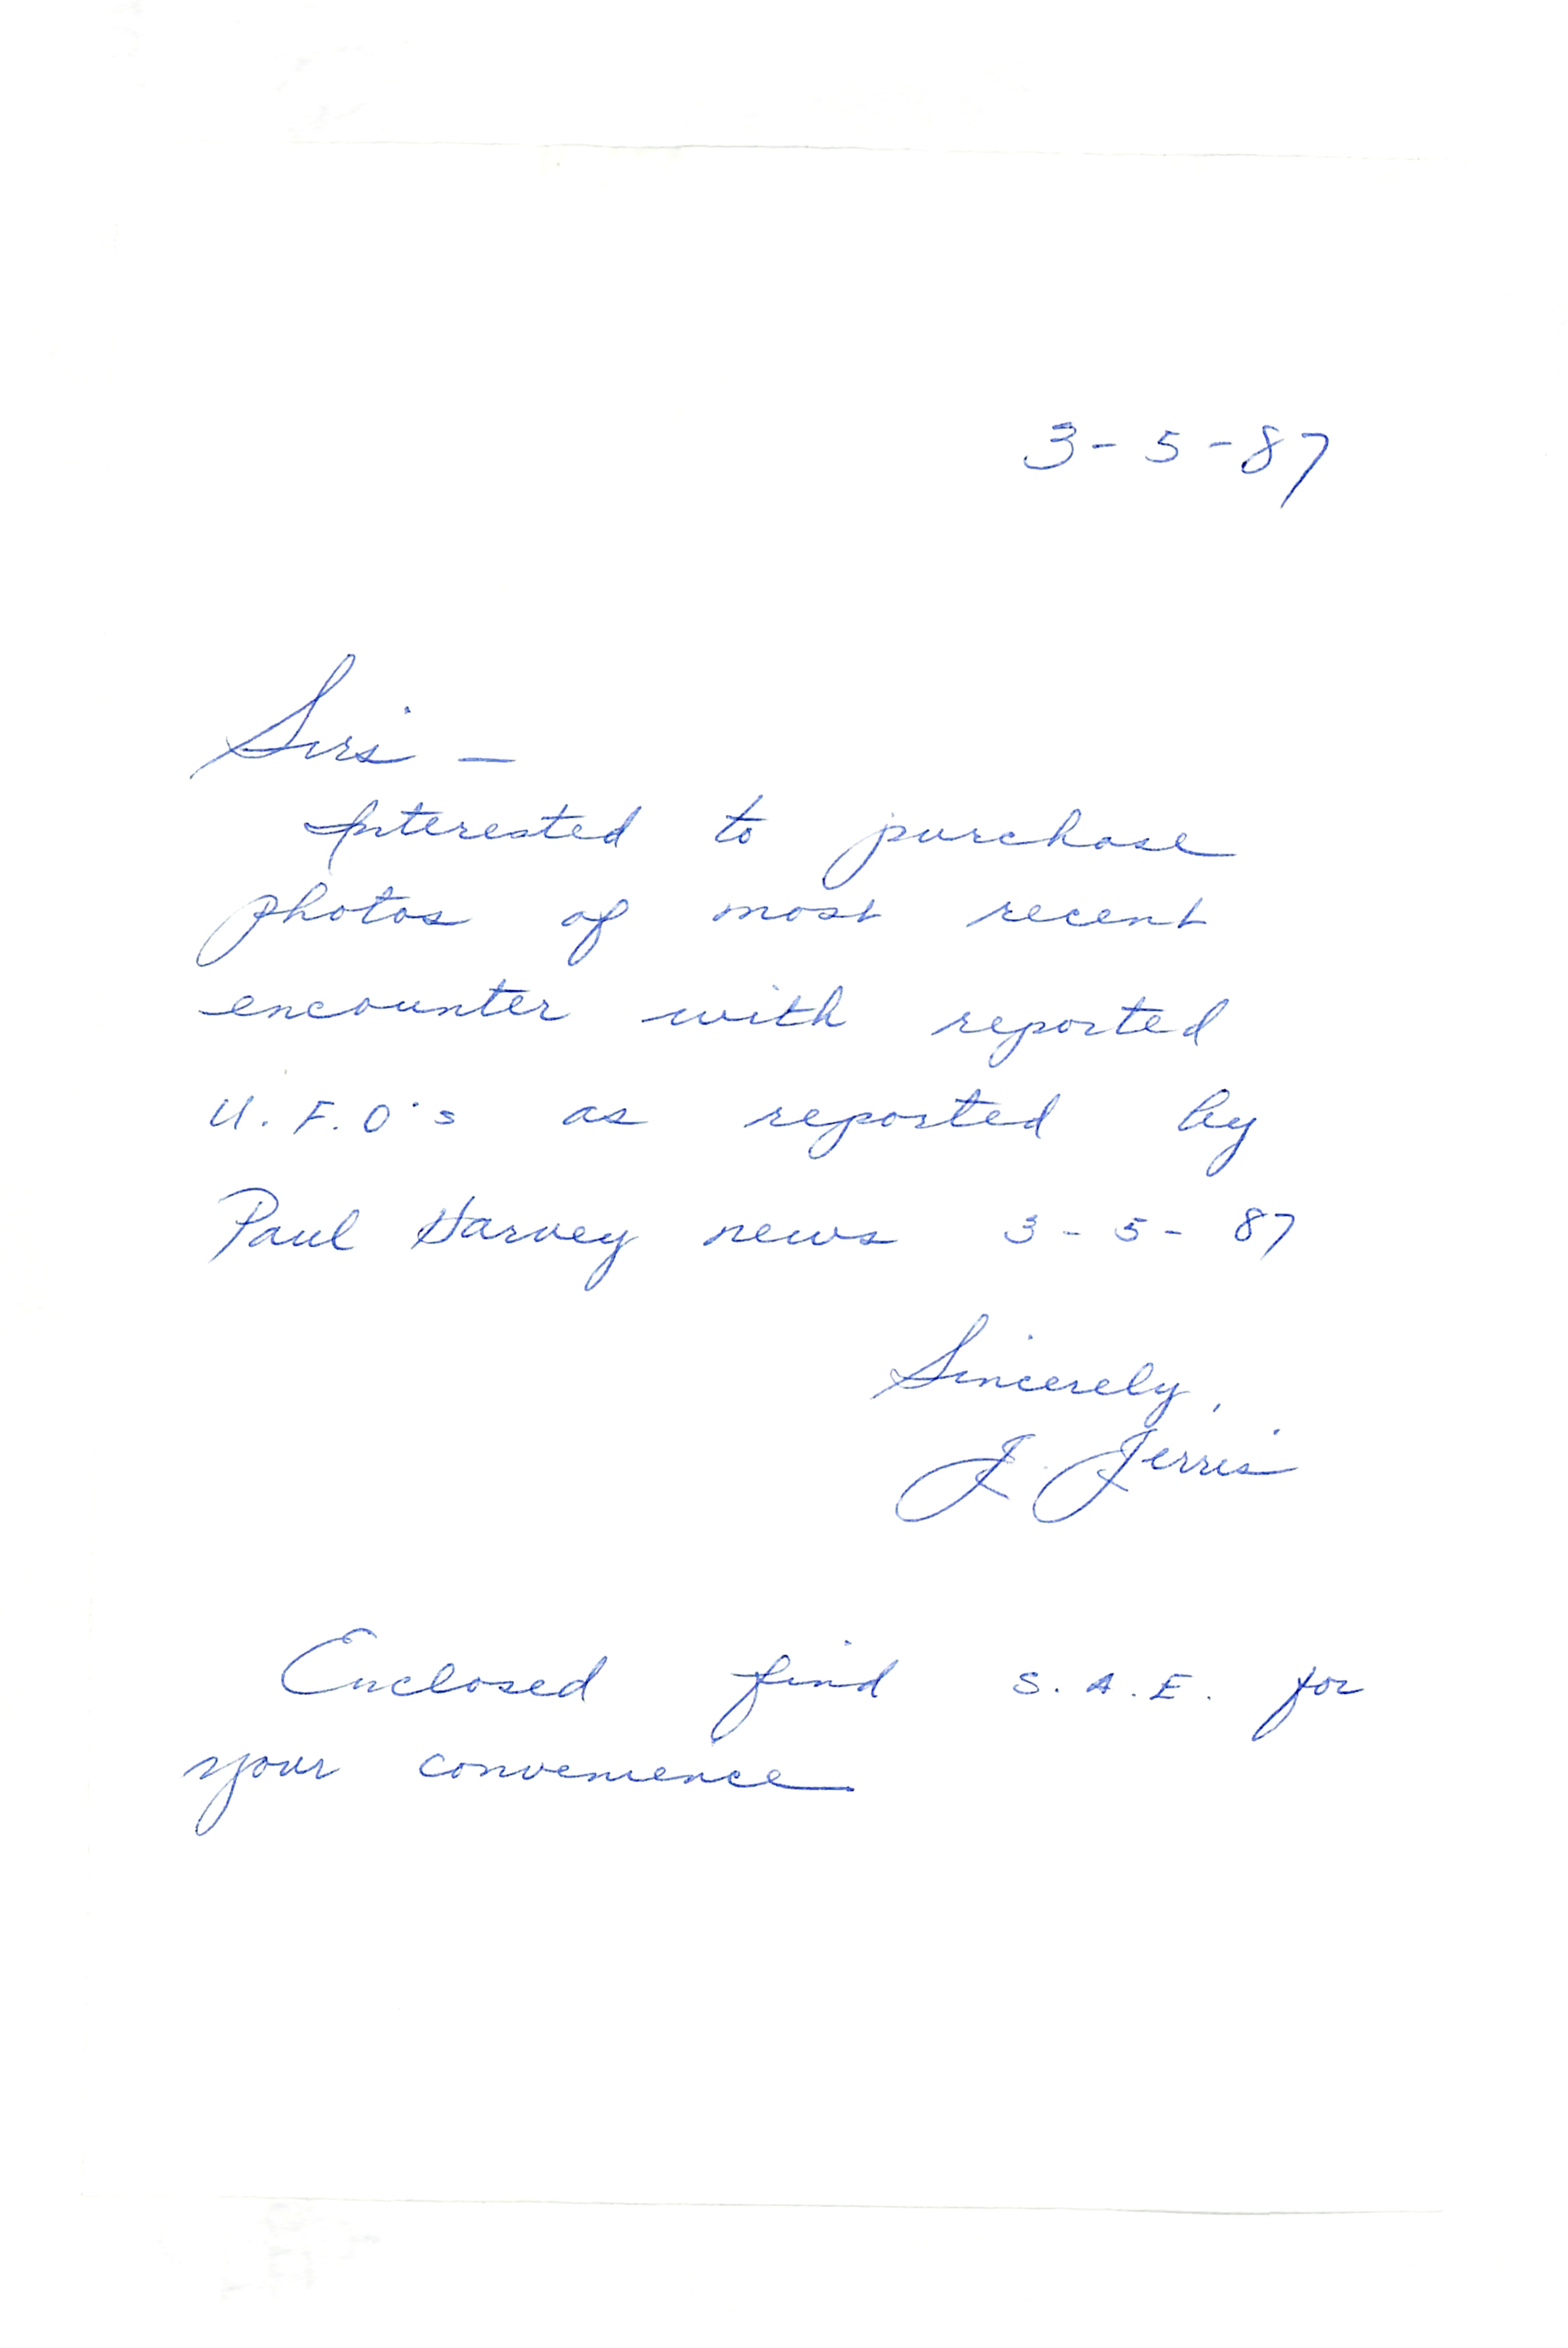 3-5-87
Sirs —
Interested to purchase
photos of most recent
encounter with reported
U.F.O's as reported by
Paul Harvey news 3-5-87
Sincerely,
J. Jerris
Enclosed find S.A.E. for
your convenience